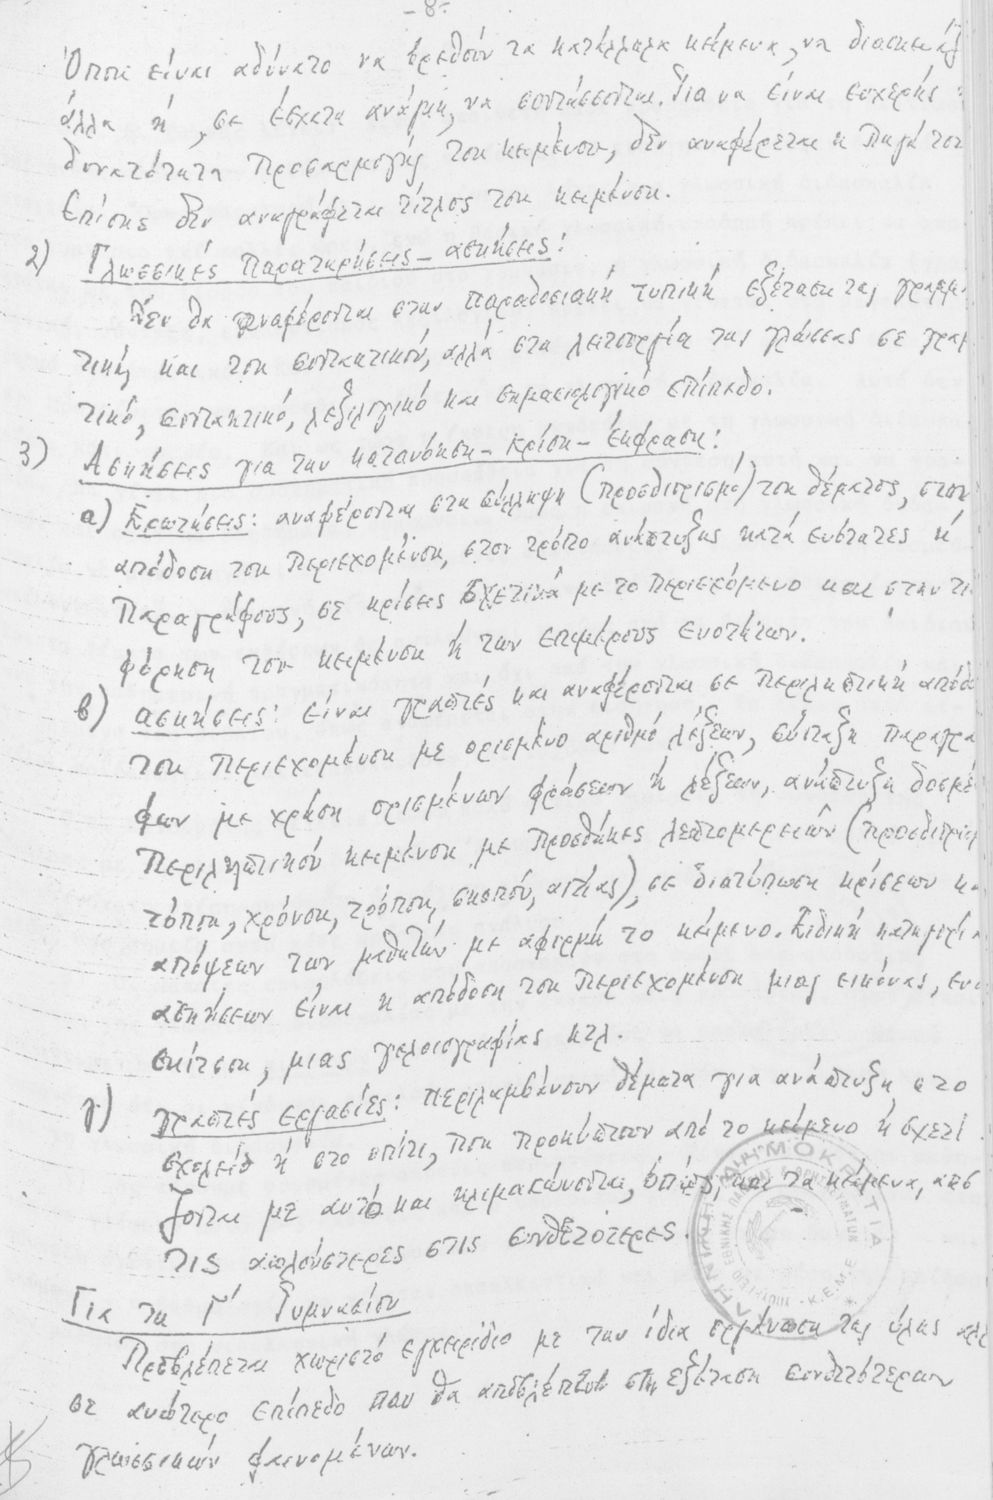 -8-
Όπου είναι αδύνατο να βρεθούν τα κατάλληλα κείμενα, να διασκευάζ
άλλα ή, σε έσχατη ανάγκη, να συντάσσονται. Για να είναι ευχερής η
δυνατότητα προσαρμογής του κειμένου, δεν αναφέρεται η πηγή του
Επίσης δεν αναγράφεται τίτλος του κειμένου.
2) Γλωσσικές παρατηρήσεις - ασκήσεις:
Δεν θα αναφέρονται στην παραδοσιακή τυπική εξέταση της γραμμα
τικής και του συντακτικού, αλλά στη λειτουργία της γλώσσας σε γραμ
τικό, συντακτικό, λεξιλογικό και σημασιολογικό επίπεδο.
3) Ασκήσεις για την κατανόηση - κρίση - έκφραση:
α) Ερωτήσεις: αναφέρονται στη σύλληψη (προσδιορισμό) του θέματος, στην
απόδοση του περιεχομένου, στον τρόπο ανάπτυξης κατά ενότητες ή
παραγράφους, σε κρίσεις σχετικά με το περιεχόμενο και στην τι
φόρηση του κειμένου ή των επιμέρους ενοτήτων.
β) ασκήσεις: είναι γραπτές και αναφέρονται σε περιληπτική απόδο
του περιεχομένου με ορισμένο αριθμό λέξεων, σύνταξη παραγρά
φων με χρήση ορισμένων φράσεων ή λέξεων, ανάπτυξη δοσμέ
περιληπτικού κειμένου με προσθήκες λεπτομερειών (προσδιορισμ
τόπου, χρόνου, τρόπου, σκοπού, αιτίας), σε διατύπωση κρίσεων κα
απόψεων των μαθητών με αφορμή το κείμενο. Ειδική κατηγορία
ασκήσεων είναι η απόδοση του περιεχομένου μιας εικόνας, ενό
σκίτσου, μιας γελοιογραφίας κτλ.
γ) γραπτές εργασίες: περιλαμβάνουν θέματα για ανάπτυξη στο
σχολείο ή στο σπίτι, που προκύπτουν από το κείμενο ή σχετί
ζονται με αυτό και κλιμακώνονται, όπως και τα κείμενα, από
τις απλούστερες στις συνθετότερες.
Για τη Γ' Γυμνασίου
Προβλέπεται χωριστό εγχειρίδιο με την ίδια οργάνωση της ύλης αλλ
σε ανώτερο επίπεδο που θα αποβλέπει στη εξέταση συνθετότερων
γλωσσικών φαινομένων.
ΕΛΛΗΝΙΚΗ ΔΗΜΟΚΡΑΤΙΑ
ΥΠΟΥΡΓΕΙΟ ΕΘΝΙΚΗΣ ΠΑΙΔΕΙΑΣ & ΘΡΗΣΚΕΥΜΑΤΩΝ
Κ.Ε.Μ.Ε